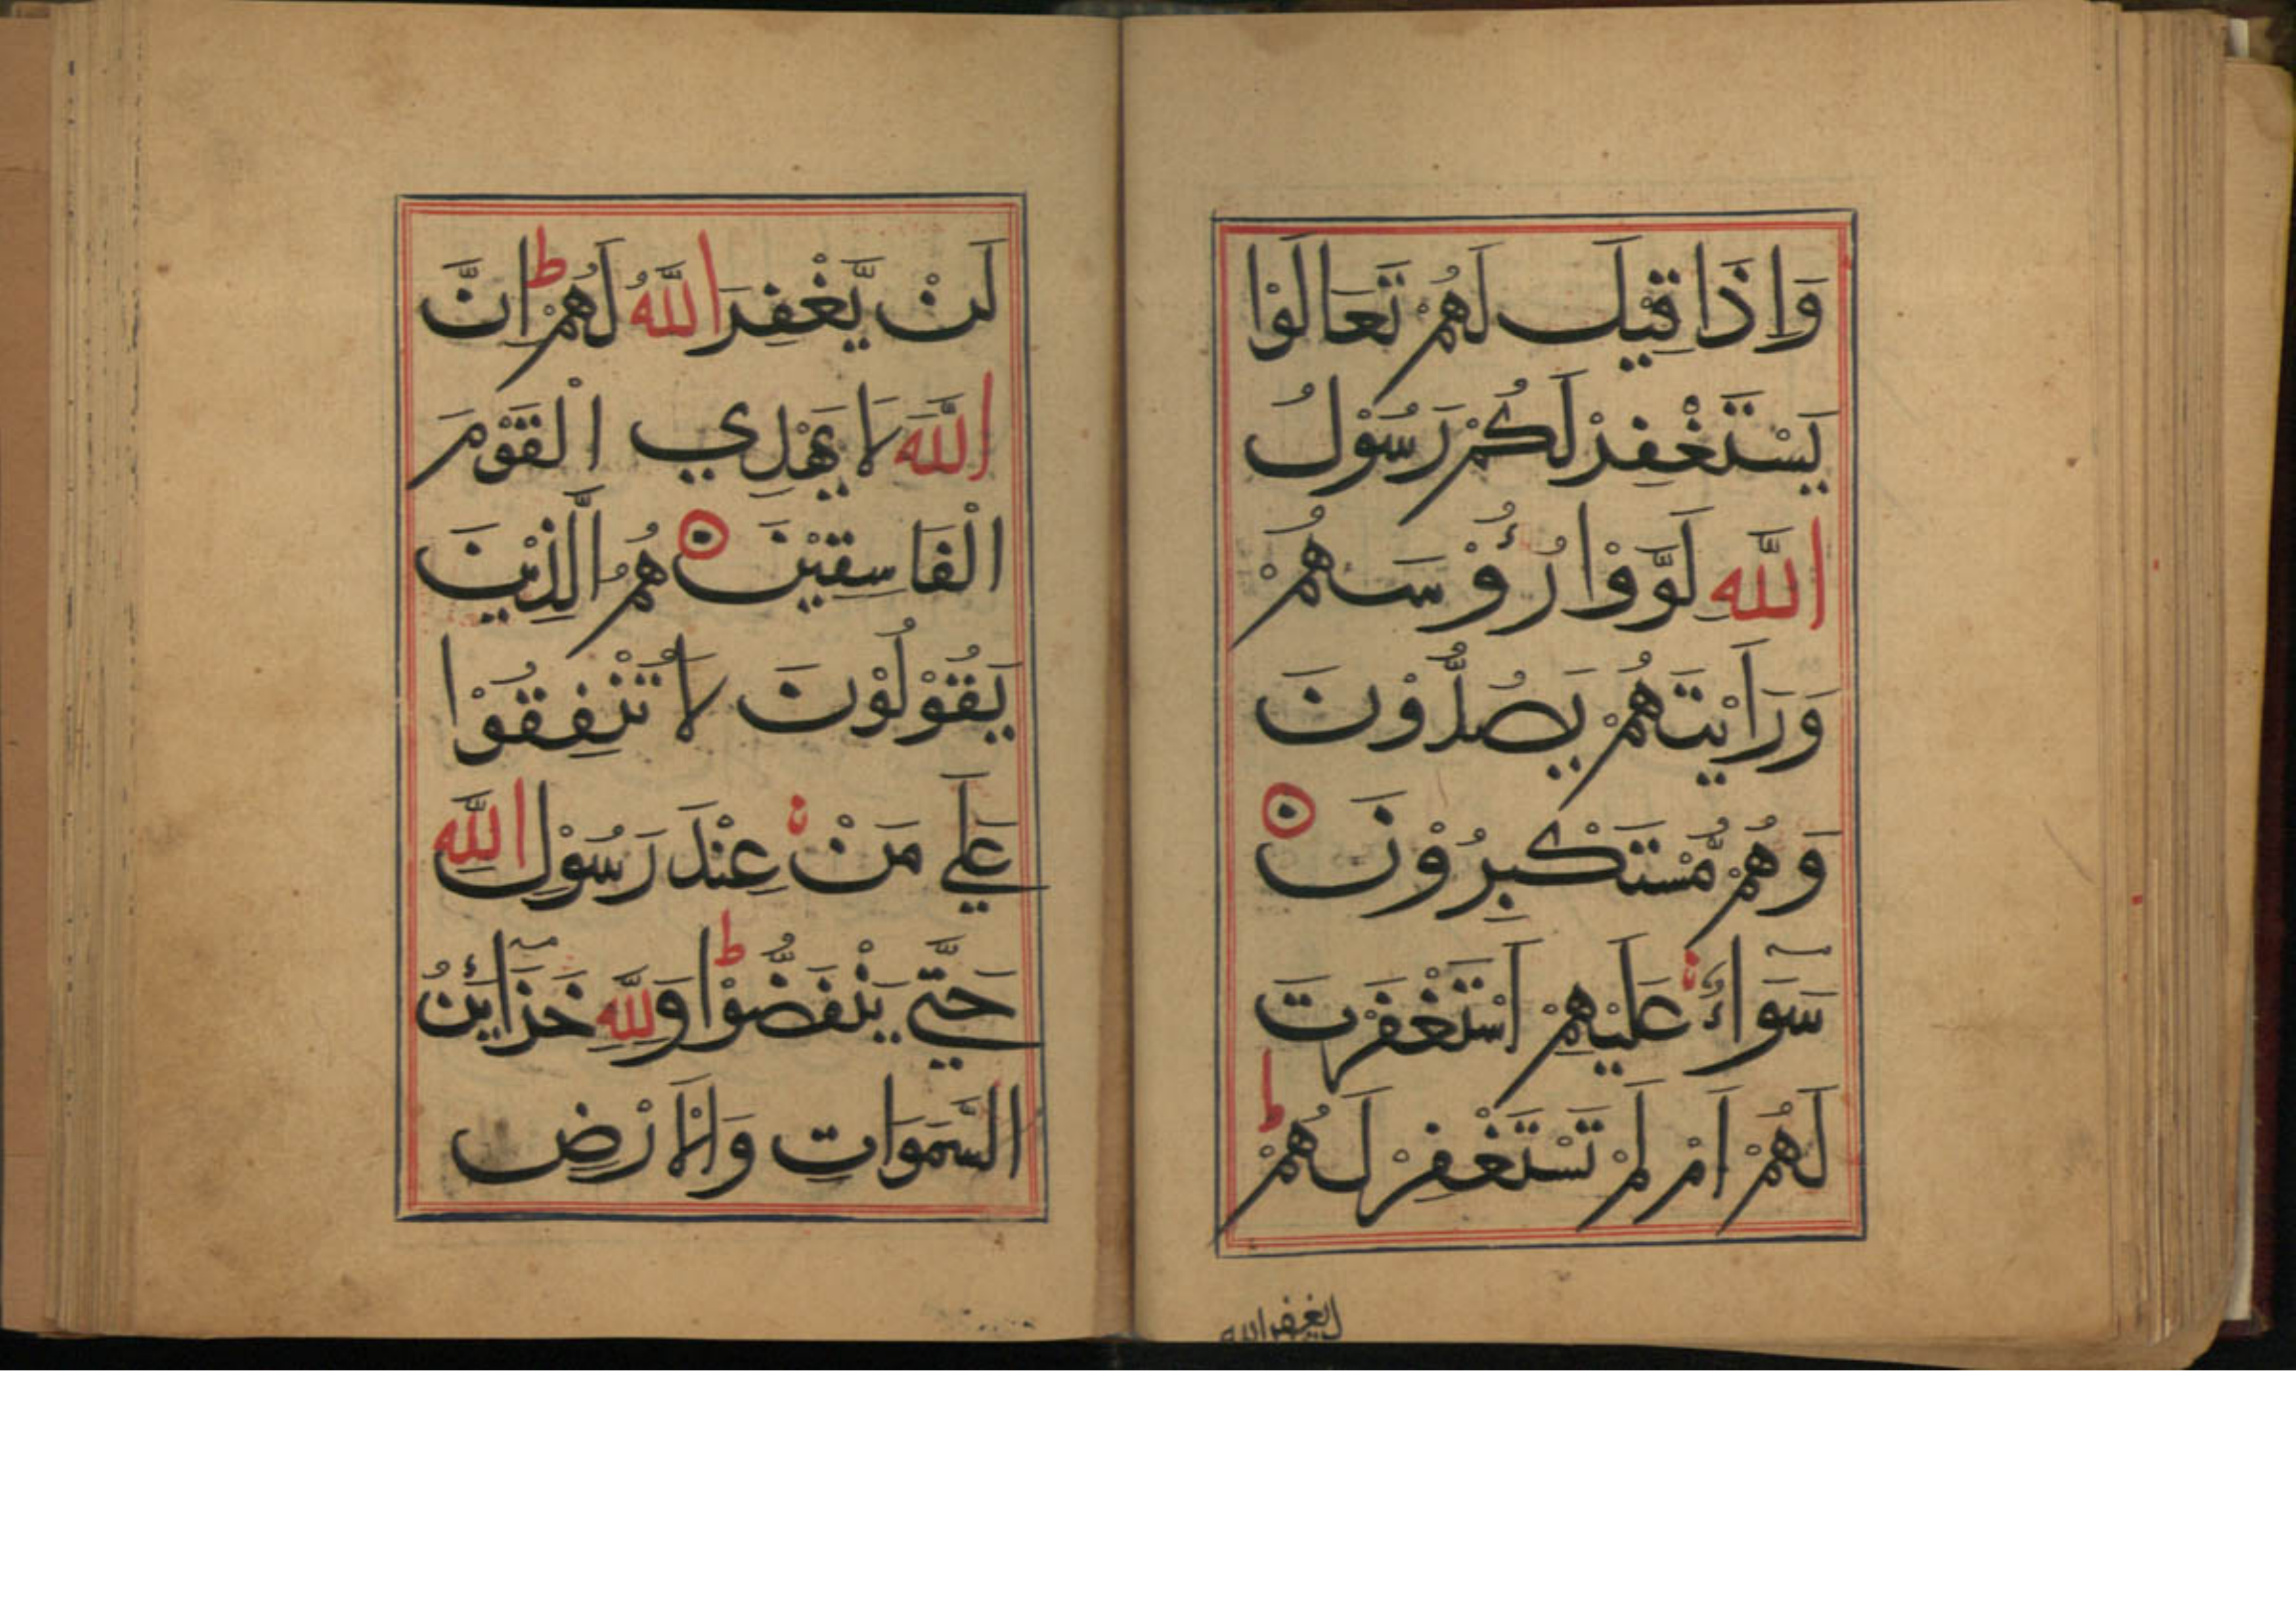 وَاِذَا قِيْلَ لَهُمْ تَعَالَوْا
يَسْتَغْفِرْ لَكُمْ رَسُوْلُ
اللَّهِ لَوَّوْا رُؤُوْسَهُمْ
وَرَاَيْتَهُمْ يَصُدُّوْنَ
وَهُمْ مُّسْتَكْبِرُوْنَ
سَوَآءٌ عَلَيْهِمْ اَسْتَغْفَرْتَ
لَهُمْ اَمْ لَمْ تَسْتَغْفِرْ لَهُمْ ط
لن يغفر الله
لَنْ يَّغْفِرَ اللَّهُ لَهُمْ ط اِنَّ
اللَّهَ لَا يَهْدِي الْقَوْمَ
الْفَاسِقِيْنَ هُمُ الَّذِيْنَ
يَقُوْلُوْنَ لَا تُنْفِقُوْا
عَلٰي مَنْ عِنْدَ رَسُوْلِ اللَّهِ
حَتّٰي يَنْفَضُّوْا ط وَلِلَّهِ خَزَآئِنُ
السَّمَوَاتِ وَالْاَرْضِ